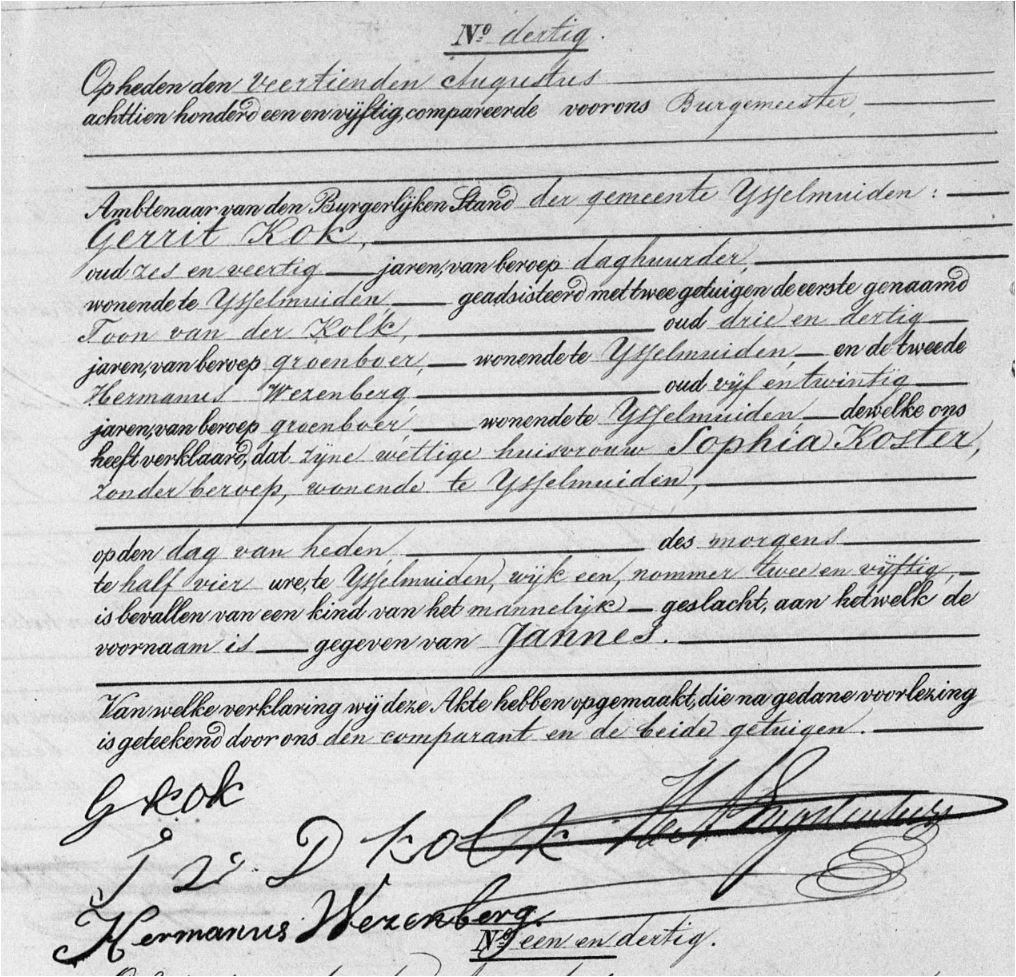 No dertig.
Op heden den veertienden Augustus
achttien honderd een en vijftig, compareerde voor ons Burgemeester,
Ambtenaar van den Burgerlijken Stand der gemeente Ysselmuiden:
Gerrit Kok,
oud zes en veertig jaren, van beroep daghuurder,
wonende te Ysselmuiden, geadsisteerd met twee getuigen de eerste genaamd
Toon van der Kolk, oud drie en dertig
jaren, van beroep groenboer, wonende te Ysselmuiden, en de tweede
Hermanus Wezenberg, oud vijf en twintig
jaren, van beroep groenboer, wonende te Ysselmuiden, dewelke ons
heeft verklaard, dat zyne wettige huisvrouw Sophia Koster,
zonder beroep, wonende te Ysselmuiden,
op den dag van heden des morgens
te half vier ure, te Ysselmuiden, wijk een, nommer twee en vijftig,
is bevallen van een kind van het mannelijk geslacht, aan hetwelk de
voornaam is gegeven van Jannes.
Van welke verklaring wij deze Akte hebben opgemaakt, die na gedane voorlezing
is geteekend door ons den comparant en de beide getuigen.
G Kok
v D kolk
Hermanus Wezenberg.
No een en dertig.